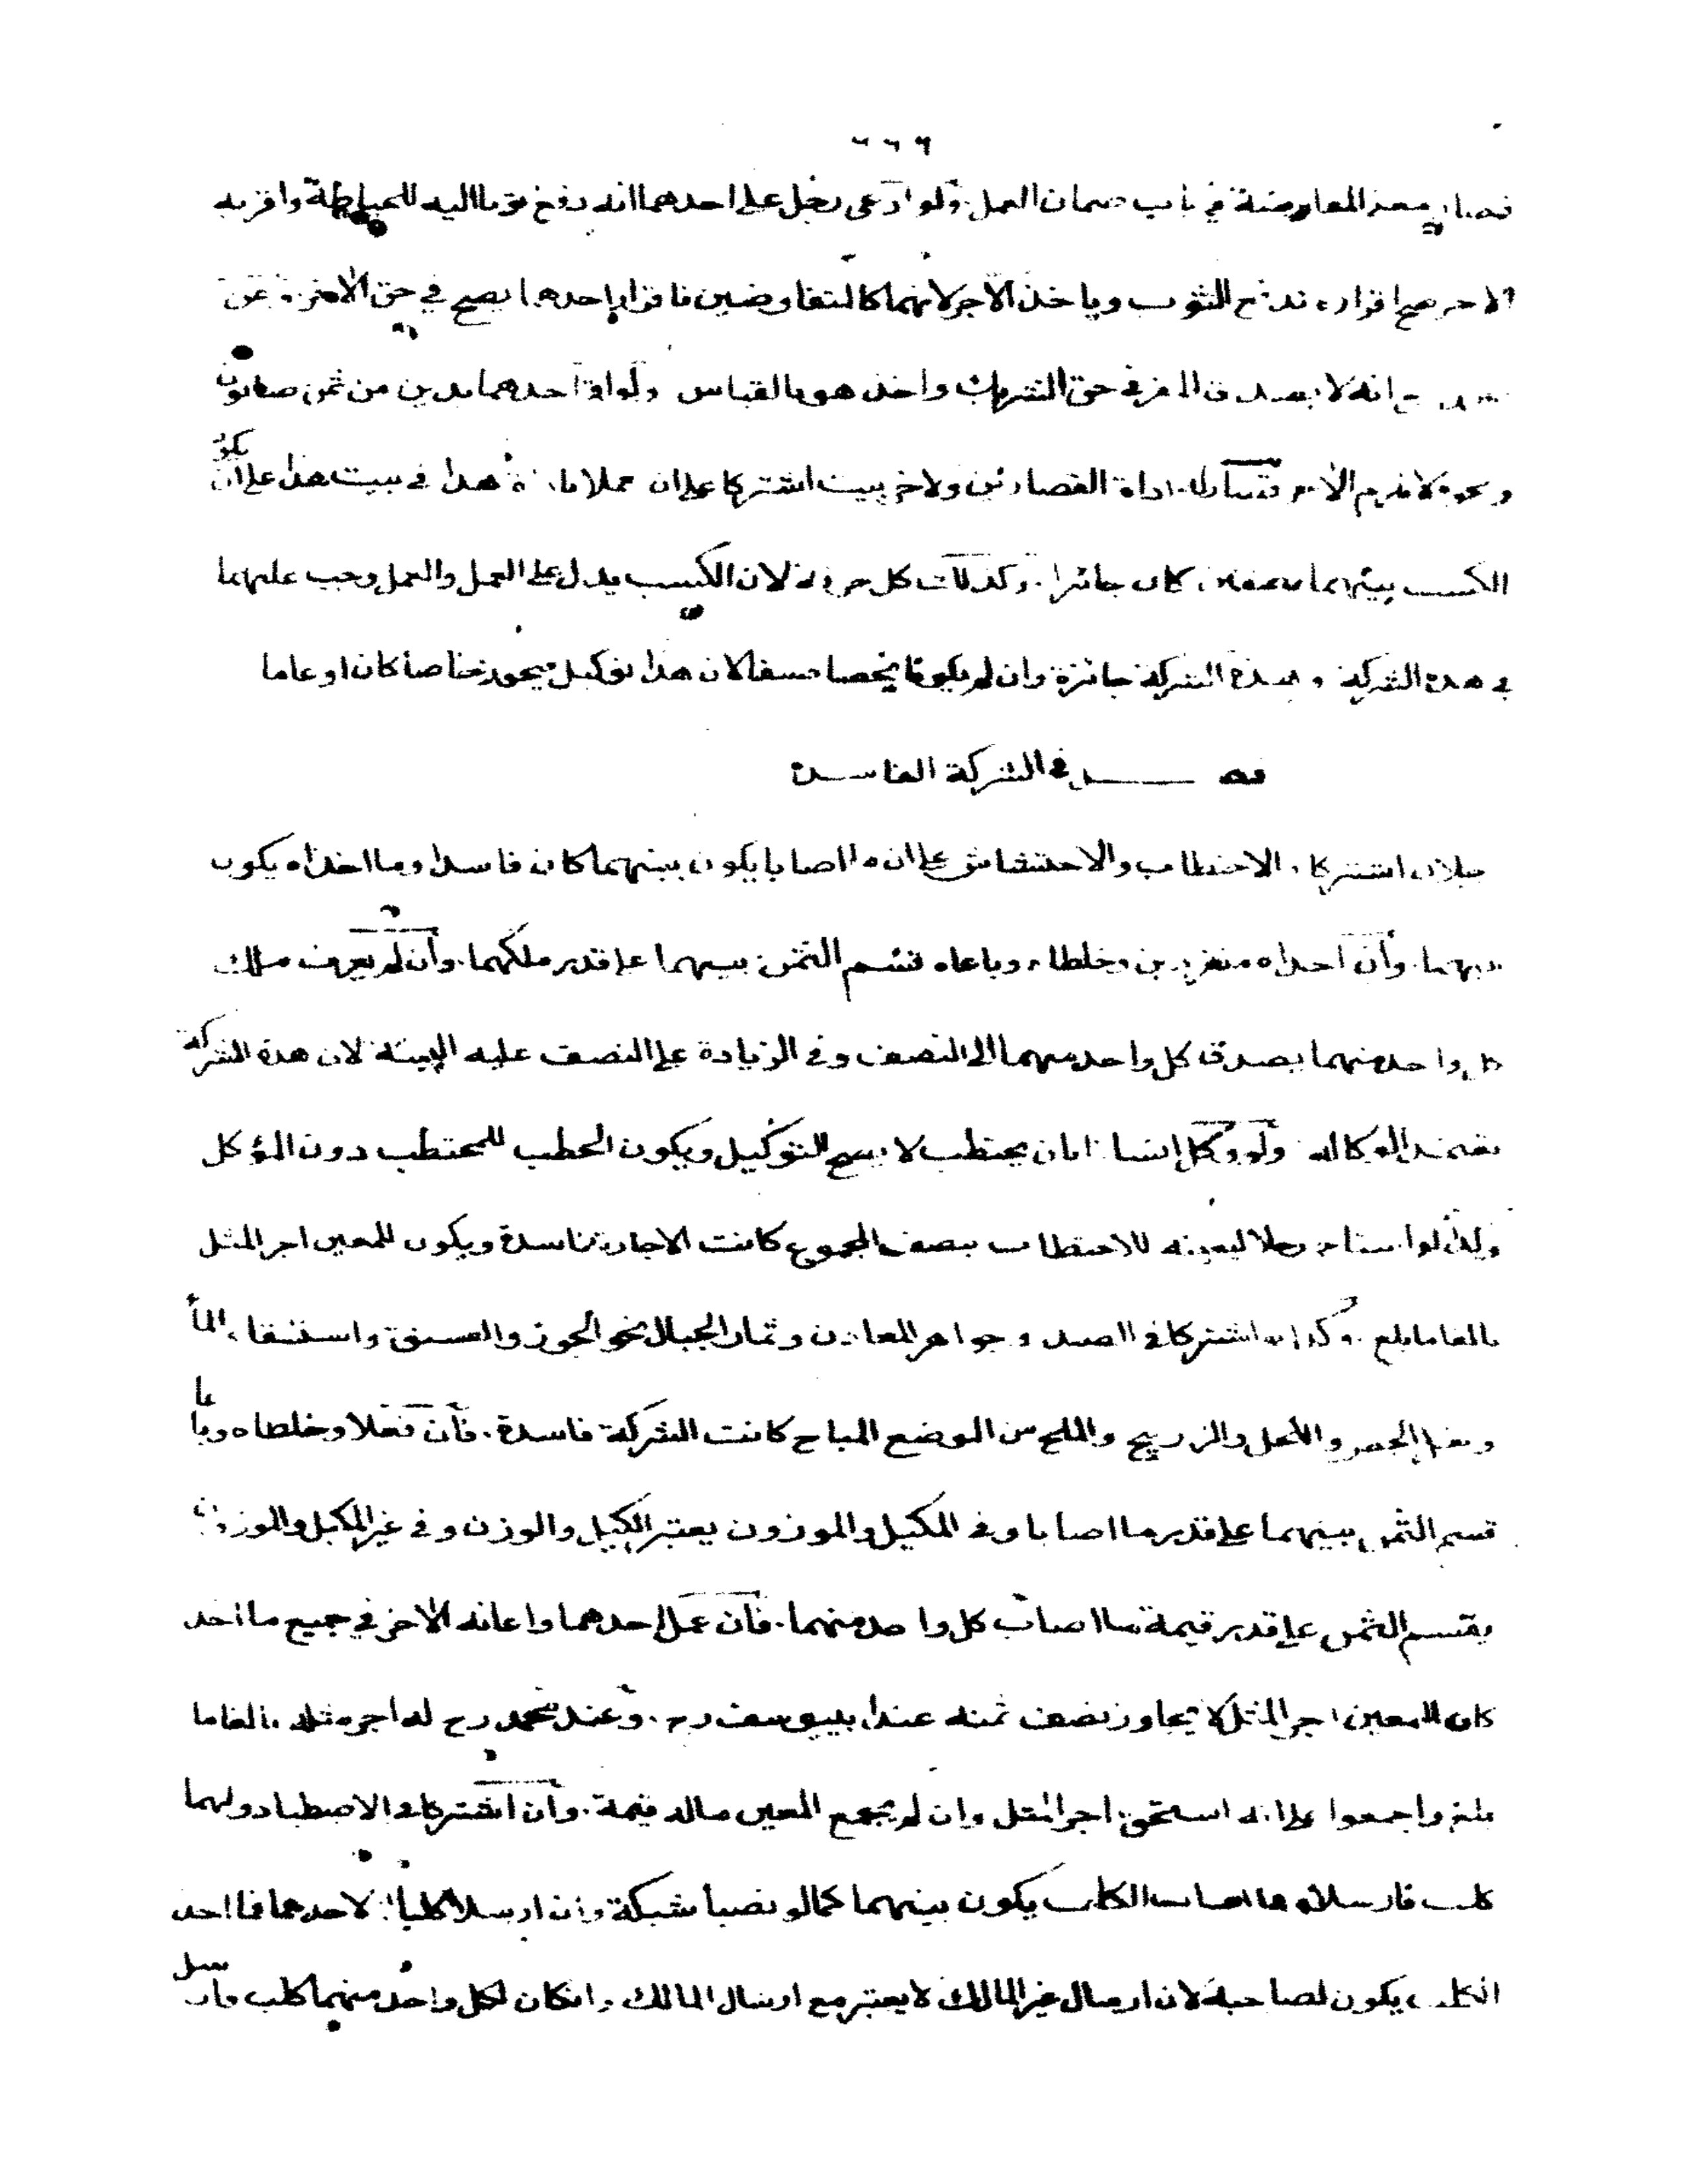 فصار بمعنى المعاوضة في باب ضمان العمل ولو ادعى رجل على احدهما انه دفع ثوبا اليه للخياطة واقر به
الاخر صح اقراره ويدفع الثوب وياخذ الاجر لانهما كالمتفاوضين فاقرار احدهما يصح في حق الاخر وعن
انه لا يصدق المقر في حق الشريك واخذ هو بالقياس ولو اقر احدهما بدين من ثمن صابون
ونحوه لا يلزم الاخر قصار له اداة القصارين ولاخر بيت اشتركا على ان عملا باداة هذا في بيت هذا على ان يكون
الكسب بينهما نصفان كان جائزا وكذلك كل حرفة لان الكسب بدل على العمل والعمل وجب عليهما
في هذه الشركة وهذه الشركة جائزة وان لم يكونا خصا صنفا لان هذا توكيل فيجوز خاصا كان او عاما
فصل في الشركة الفاسدة
رجلان اشتركا في الاحتطاب والاحتشاش على ان ما اصابا يكون بينهما كان فاسدا وما اخذاه يكون
بينهما وان اخذاه منفردين وخلطاه وباعاه قسم الثمن بينهما على قدر ملكهما وان لم يعرف ملك
كل واحد منهما يصدق كل واحد منهما الى النصف وفي الزيادة على النصف عليه البينة لان هذه الشركة
تضمنت الوكالة ولو وكل انسانا بان يحتطب لا يصح التوكيل ويكون الحطب للمحتطب دون المؤكل
وكذا لو استاجر رجلا ليعينه للاحتطاب بنصف المجموع كانت الاجارة فاسدة ويكون للمعين اجر المثل
بالغا ما بلغ وكذا ان اشتركا في الصيد وجواهر المعادن وثمار الجبال نحو الجوز والفستق واستقاء الماء
ونقل الجص والكحل والزرنيخ والملح من الموضع المباح كانت الشركة فاسدة فان فعلا وخلطاه وباعا
قسم الثمن بينهما على قدر ما اصابا وفي المكيل والموزون يعتبر الكيل والوزن وفي غير المكيل والموزون
يقتسم الثمن على قدر قيمة ما اصاب كل واحد منهما فان عمل احدهما واعانه الاخر في جميع ما اخذ
كان للمعين اجر المثل لا يجاوز نصف ثمنه عند ابي يوسف رح وعند محمد رح له اجر مثله بالغا ما
بلغ واجمعوا على انه استحق اجر المثل وان لم يجمع المعين ماله قيمة وان اشتركا في الاصطياد ولهما
كلب فارسلاه فما اصاب الكلب يكون بينهما كما لو نصبا شبكة وان ارسلا كلبا لاحدهما فما اخذ
الكلب يكون لصاحبه لان ارسال غير المالك لا يعتبر مع ارسال المالك وان كان لكل واحد منهما كلب فارسل